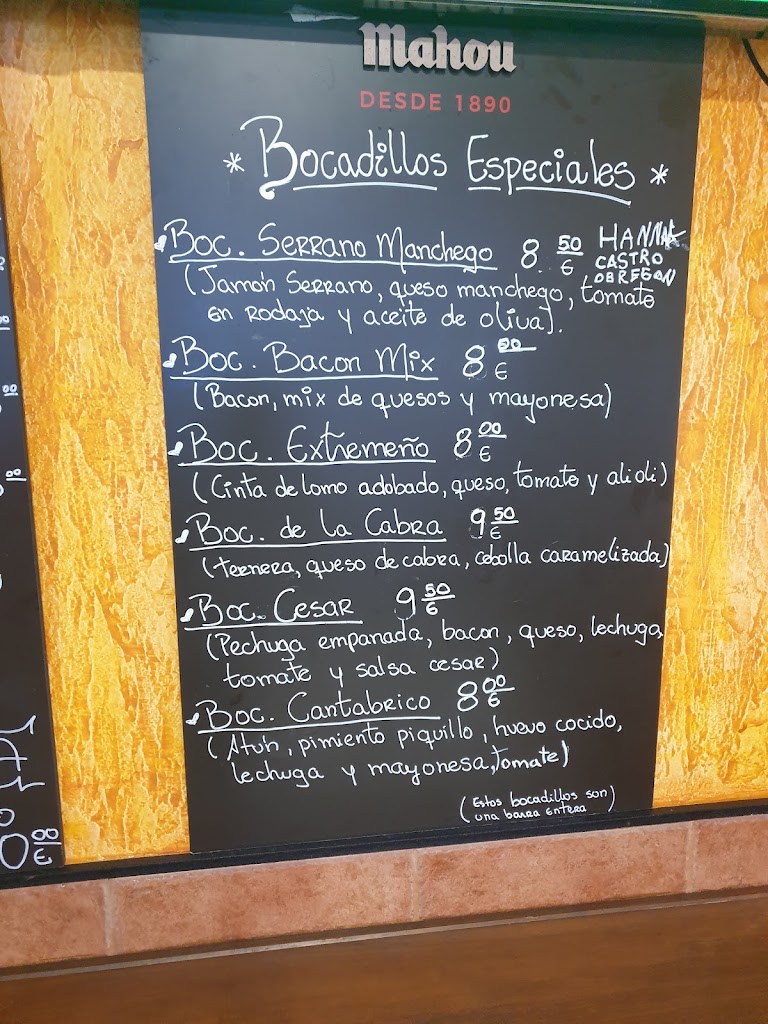 Mahou
DESDE 1890
* Bocadillos Especiales *
Boc. Serrano Manchego 8 50 €
HANNA
CASTRO
OBREGON
(Jamón Serrano, queso manchego, tomate
en Rodaja y aceite de oliva).
Boc. Bacon Mix 8 00 €
(Bacon, mix de quesos y mayonesa)
Boc. Extremeño 8 00 €
(Cinta de lomo adobado, queso, tomate y alioli)
Boc. de la Cabra 9 50 €
(ternera, queso de cabra, cebolla caramelizada)
Boc. Cesar 9 50 €
(Pechuga empanada, bacon, queso, lechuga
tomate y salsa cesar)
Boc. Cantabrico 8 00 €
(Atún, pimiento piquillo, huevo cocido,
lechuga y mayonesa, tomate)
(Estos bocadillos son
una barra entera)